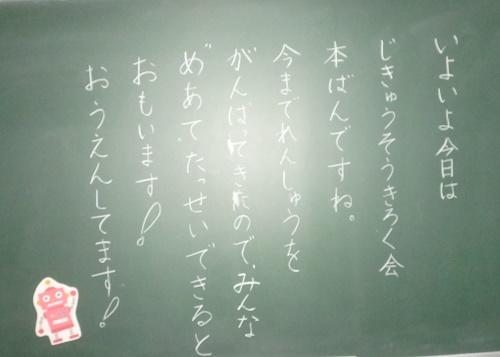 いよいよ今日は
じきゅうそうきろく会
本ばんですね。
今までれんしゅうを
がんばってきたので、みんな
めあてたっせいできると
おもいます!
おうえんしてます!